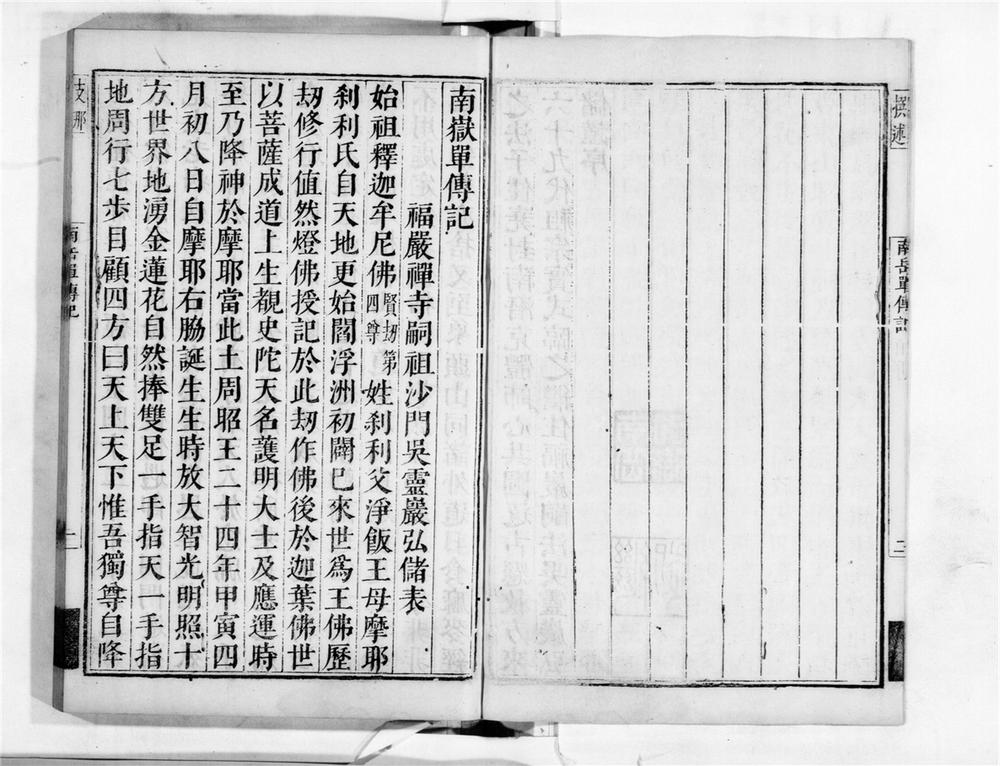 撰述
南岳單傳記
二
南嶽單傳記
福嚴禪寺嗣祖沙門吳靈巖弘儲表
始祖釋迦牟尼佛賢劫第四尊姓剎利父淨飯王母摩耶
剎利氏自天地更始閻浮洲初闢已來世爲王佛歷
劫修行值然燈佛授記於此劫作佛後於迦葉佛世
以菩薩成道上生覩史陀天名護明大士及應運時
至乃降神於摩耶當此土周昭王二十四年甲寅四
月初八日自摩耶右脇誕生生時放大智光明照十
方世界地湧金蓮花自然捧雙足一手指天一手指
地周行七步目顧四方曰天上天下惟吾獨尊自降
支那
南岳單傳記
一